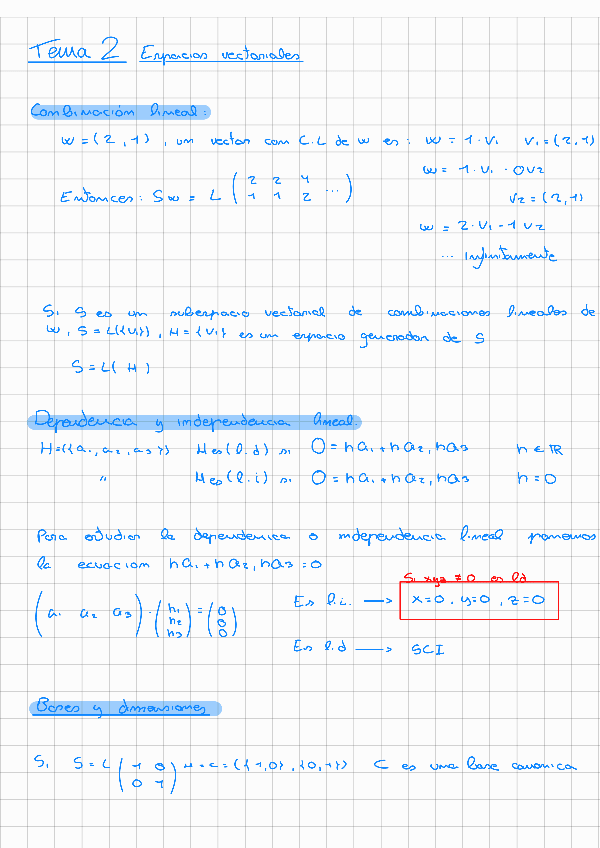 Tema 2 Espacios vectoriales
Combinación lineal:
w = (2, 1), un vector com C.L de w es: w = 1·v₁ v₁ = (2, 1)
w = 1·v₁ · 0v₂
Entonces: Sw = L ( 2 2 4 ... )
( 1 1 2 )
v₂ = (2, 1)
w = 2·v₁ - 1 v₂
... infinitamente
Si S es un subespacio vectorial de combinaciones lineales de
w, S = L({v₁}), H = {v₁} es un espacio generador de S
S = L( H )
Dependencia y independencia lineal.
H = ({a₁, a₂, a₃}) H es (l.d) si 0 = ha₁ + ha₂, ha₃ h ∈ ℝ
" H es (l.i) si 0 = ha₁ + ha₂, ha₃ h = 0
Para estudiar la dependencia o independencia lineal ponemos
la ecuacion ha₁ + ha₂, ha₃ = 0
Si xyz ≠ 0 es ld
( a₁ a₂ a₃ ) · ( h₁ h₂ h₃ ) = ( 0 0 0 ) Es l.i. → x=0, y=0, z=0
Es l.d → SCI
Bases y dimensiones
Si S = L ( 1 0 ) H = C = ({1,0}, {0,1}) C es una base canonica
( 0 1 )